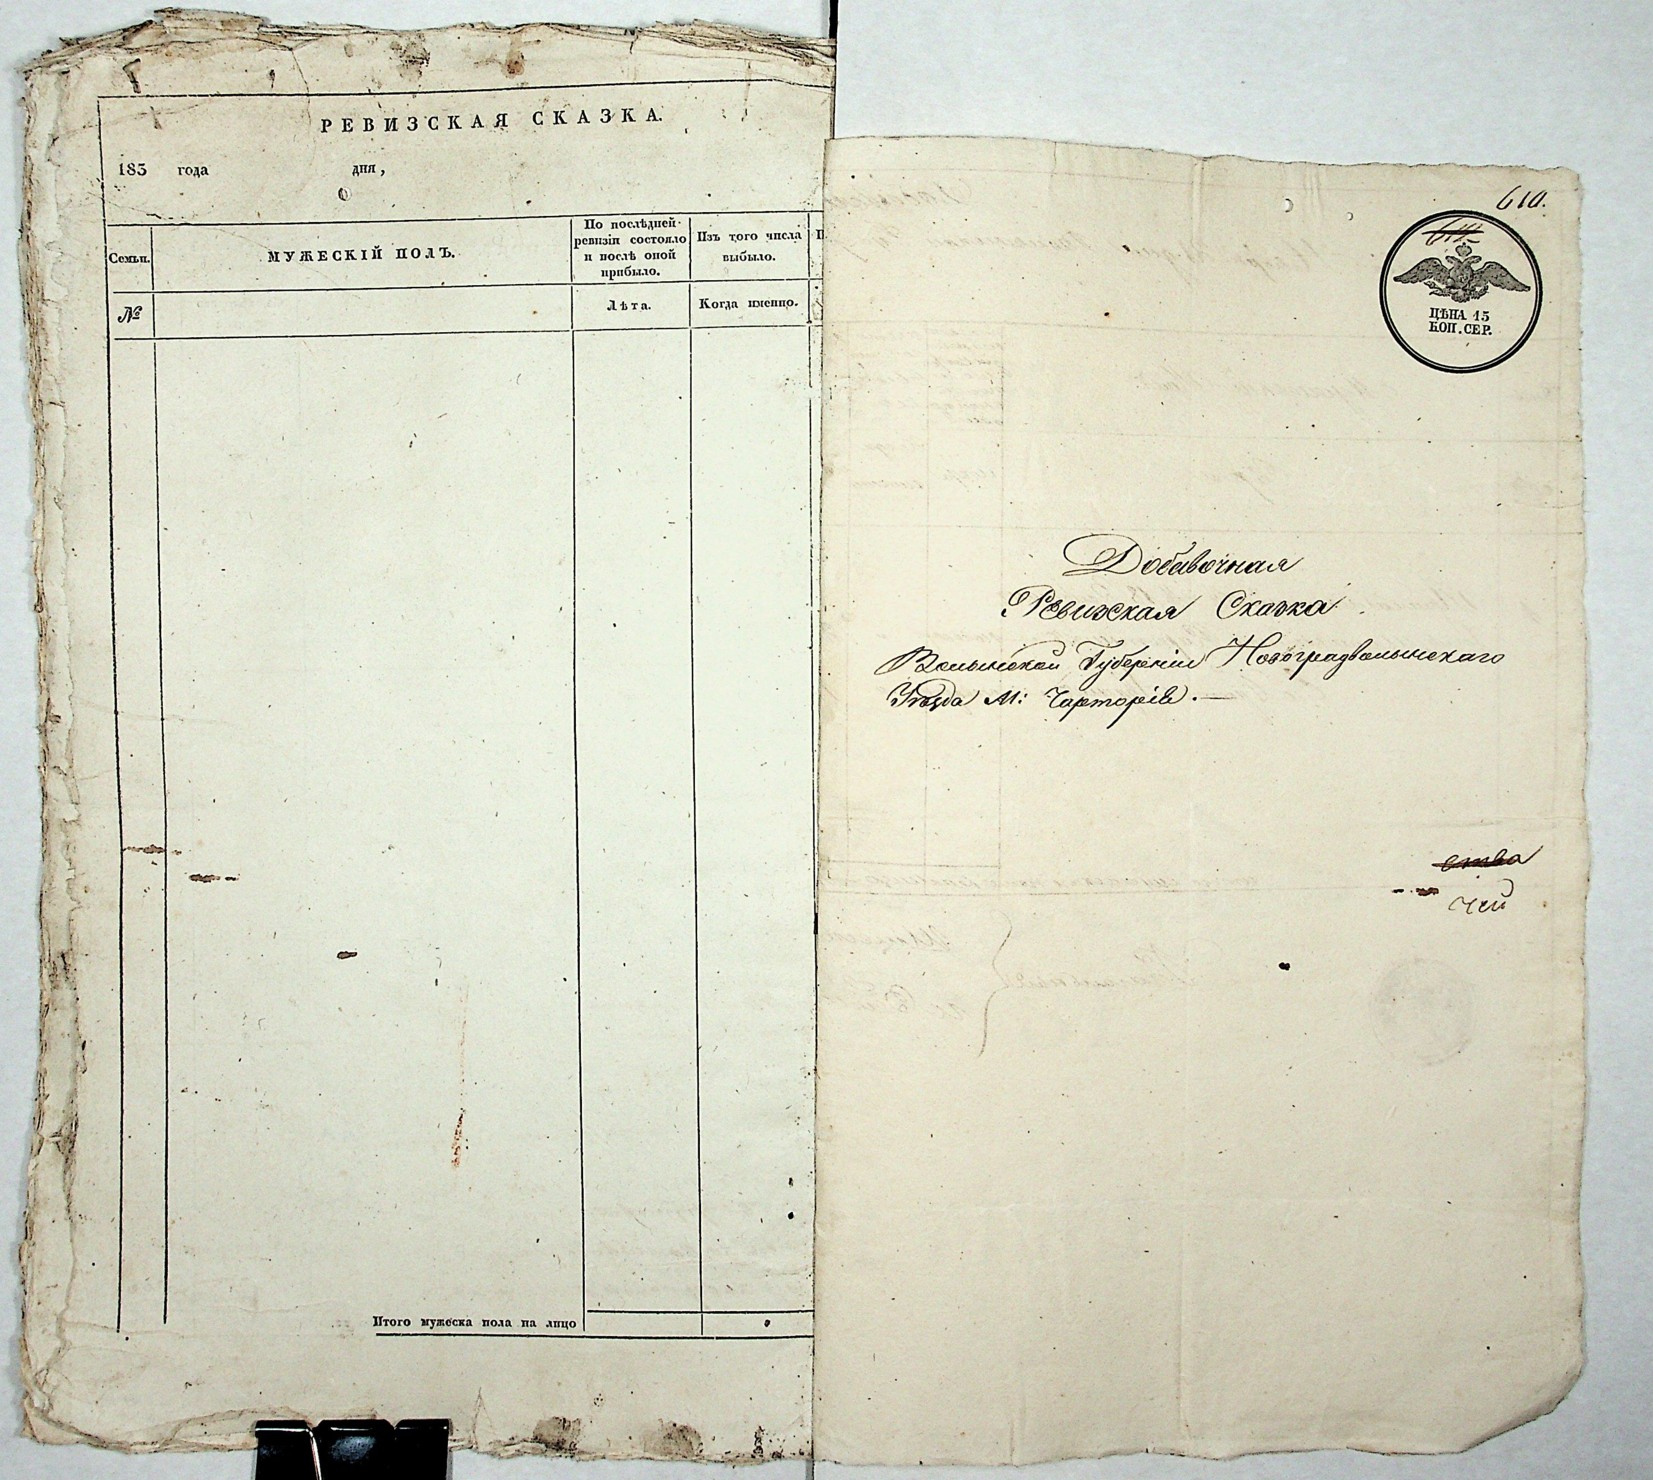 РЕВИЗСКАЯ СКАЗКА.
185 года дня,
Семьи.
МУЖЕСКІЙ ПОЛЪ.
По послѣдней ревизіи состояло и послѣ оной прибыло.
Изъ того числа выбыло.
№
Лѣта.
Когда именно.
Итого мужеска пола на лицо
610.
ЦѢНА 15
КОП. СЕР.
Добавочная
Ревизская Сказка
Волынской Губерніи Новоградволынскаго
Уѣзда М: Чарторіи. —
ства
чей